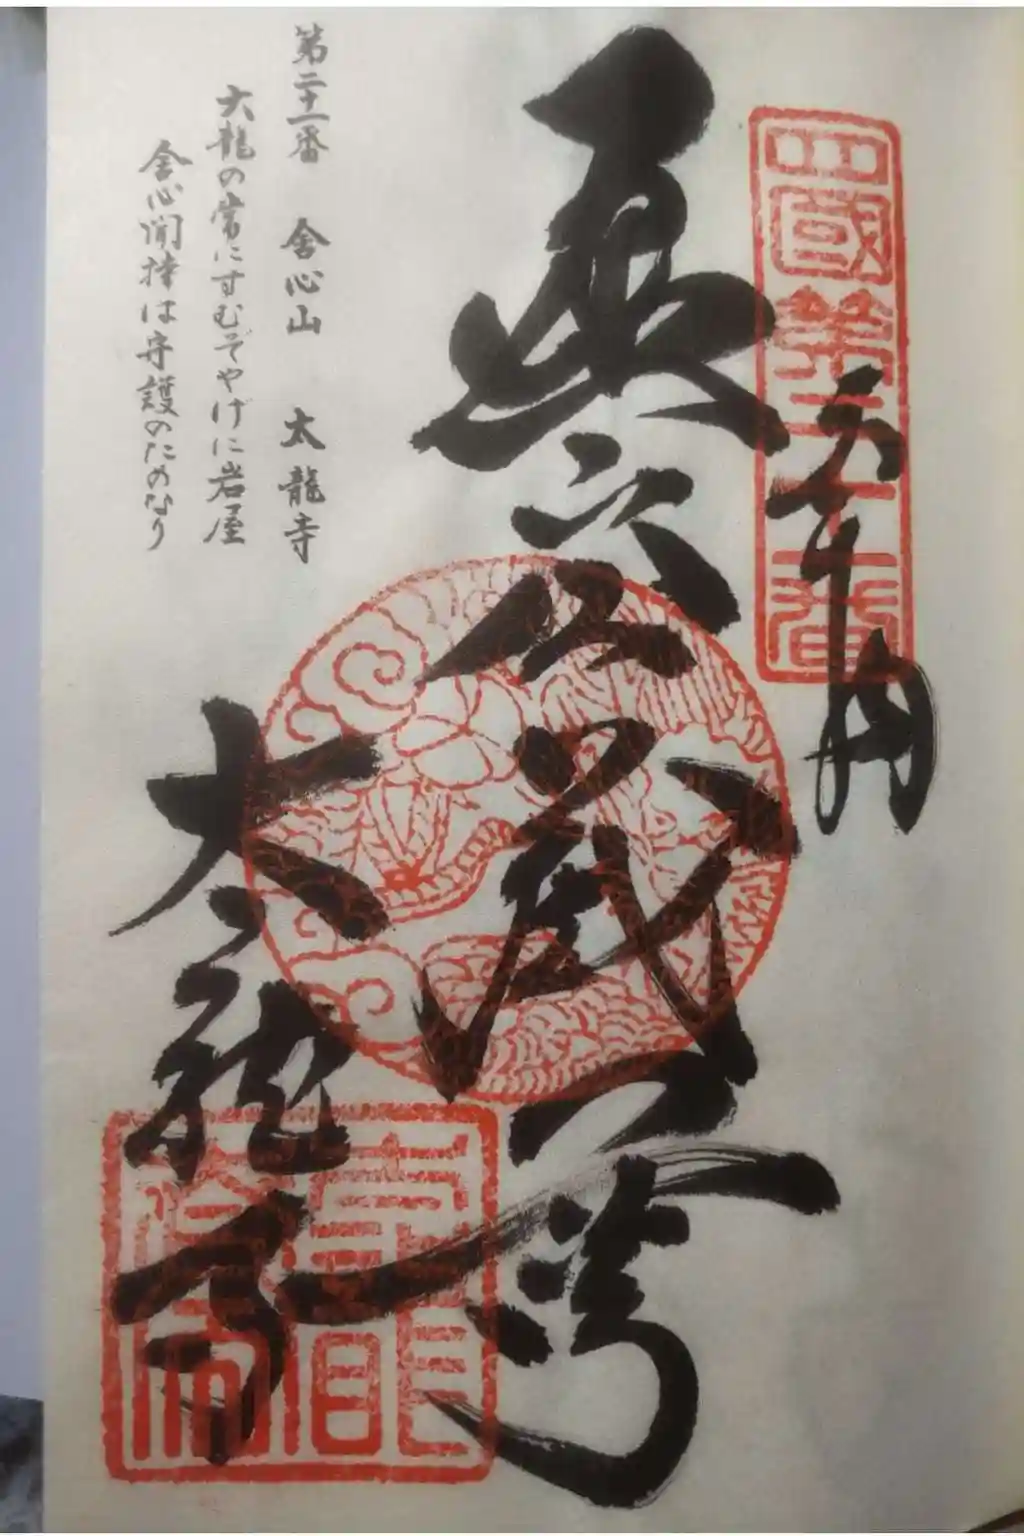 四國第二十一番
奉納
虚空蔵
太龍寺
第二十一番 舍心山 太龍寺
太龍の常にすむぞやげに岩屋
舍心聞持は守護のためなり